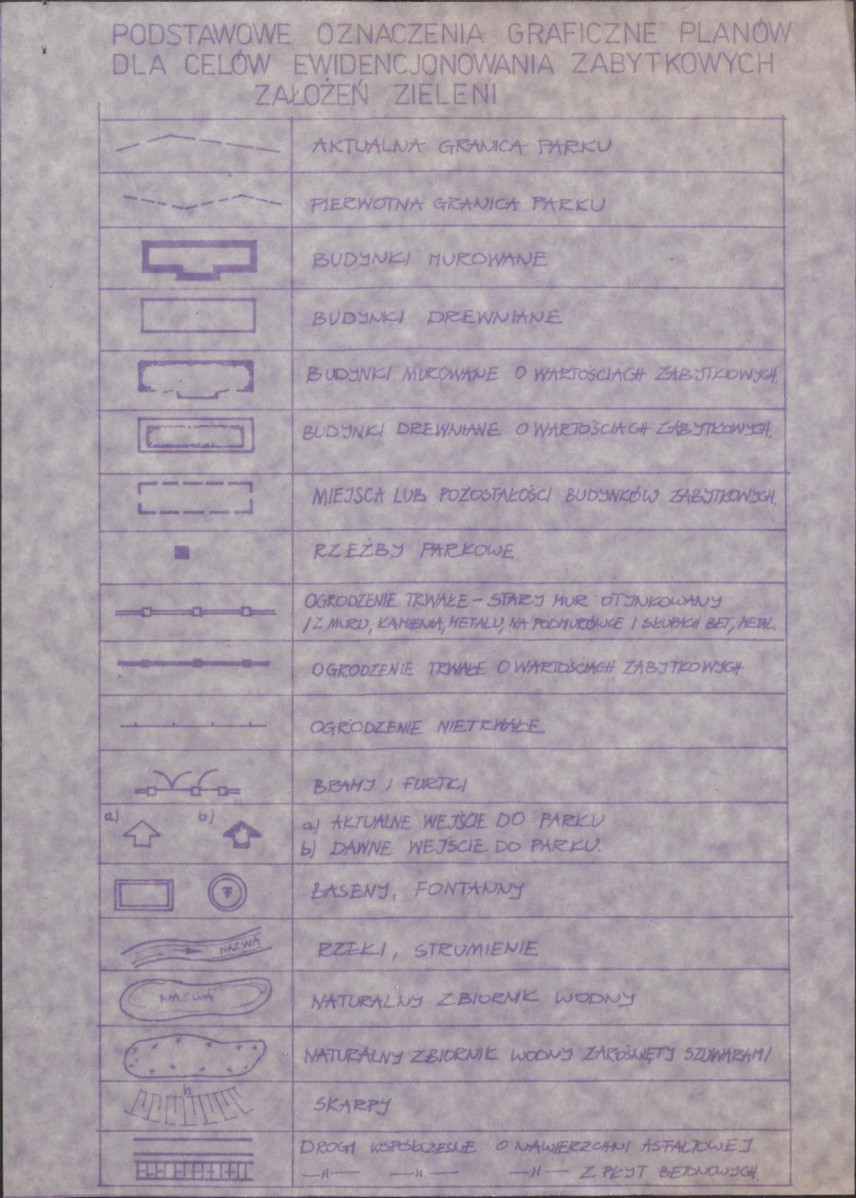 PODSTAWOWE OZNACZENIA GRAFICZNE PLANÓW
DLA CELÓW EWIDENCJONOWANIA ZABYTKOWYCH
ZAŁOŻEŃ ZIELENI
AKTUALNA GRANICA PARKU
PIERWOTNA GRANICA PARKU
BUDYNKI MUROWANE
BUDYNKI DREWNIANE
BUDYNKI MUROWANE O WARTOŚCIACH ZABYTKOWYCH.
BUDYNKI DREWNIANE O WARTOŚCIACH ZABYTKOWYCH.
MIEJSCA LUB POZOSTAŁOŚCI BUDYNKÓW ZABYTKOWYCH.
RZEŹBY PARKOWE
OGRODZENIE TRWAŁE - STARY MUR OTYNKOWANY
/Z MURU, KAMIENIA, METALU, NA PODMURÓWCE I SŁUPACH BET, METAL.
OGRODZENIE TRWAŁE O WARTOŚCIACH ZABYTKOWYCH
OGRODZENIE NIETRWAŁE
BRAMY I FURTKI
a) b) a) AKTUALNE WEJŚCIE DO PARKU
b) DAWNE WEJŚCIE DO PARKU.
BASENY, FONTANNY
NAZWA RZEKI, STRUMIENIE
NAZWA NATURALNY ZBIORNIK WODNY
NATURALNY ZBIORNIK WODNY ZAROŚNIĘTY SZUWARAMI
h SKARPY
DROGI WSPÓŁCZESNE O NAWIERZCHNI ASFALTOWEJ
—"— —"— —"— Z PŁYT BETONOWYCH.